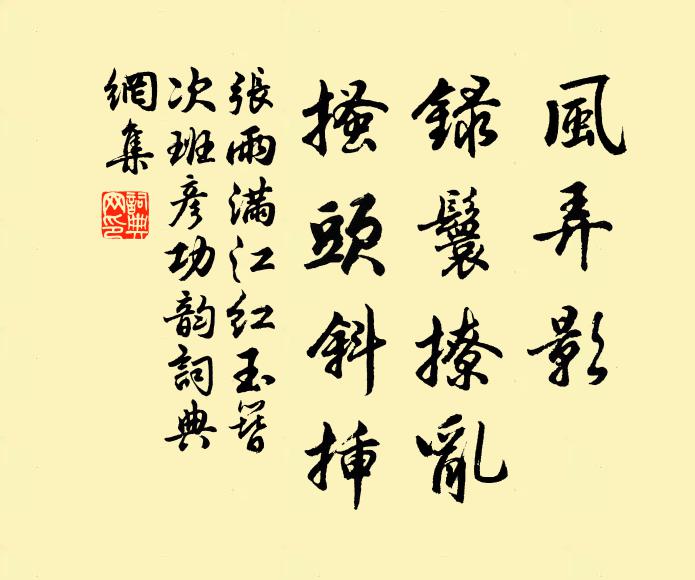 風弄影
錄鬟撩亂
搔頭斜插
張雨滿江紅玉簪
次班彥功韵詞典
網集
詞典網印